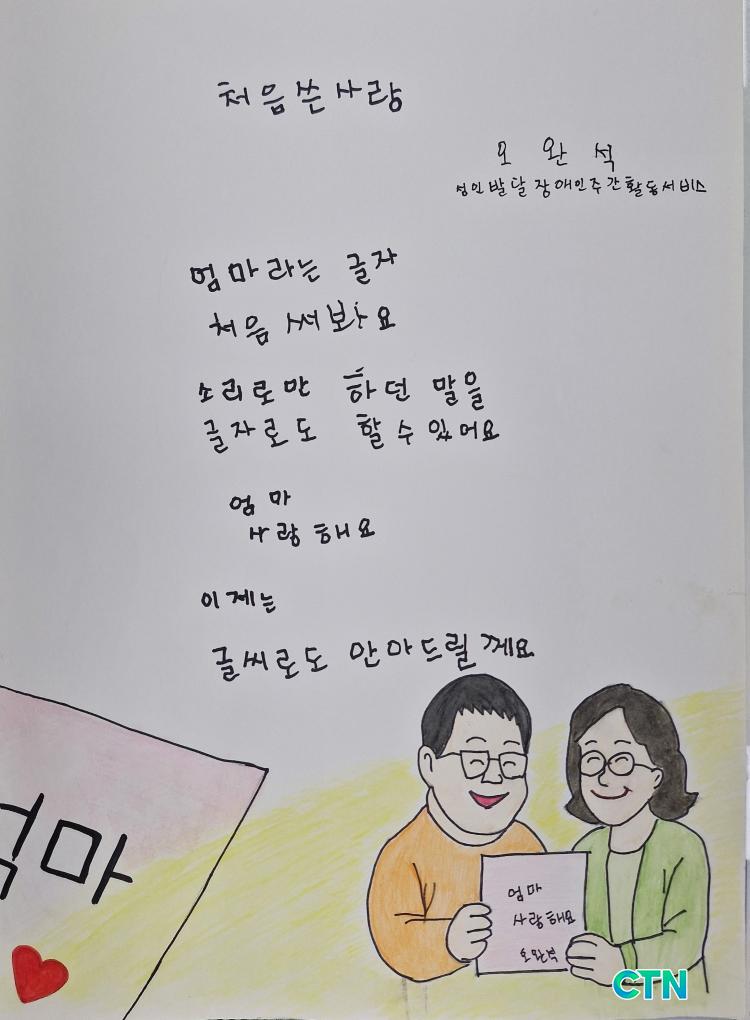 처음 쓴 사랑
오 완 석
성인발달장애인주간활동서비스
엄마라는 글자
처음 써봐요
소리로만 하던 말을
글자로도 할 수 있어요
엄마
사랑해요
이제는
글씨로도 안아드릴께요
엄마
엄마
사랑해요
오완석
CTN